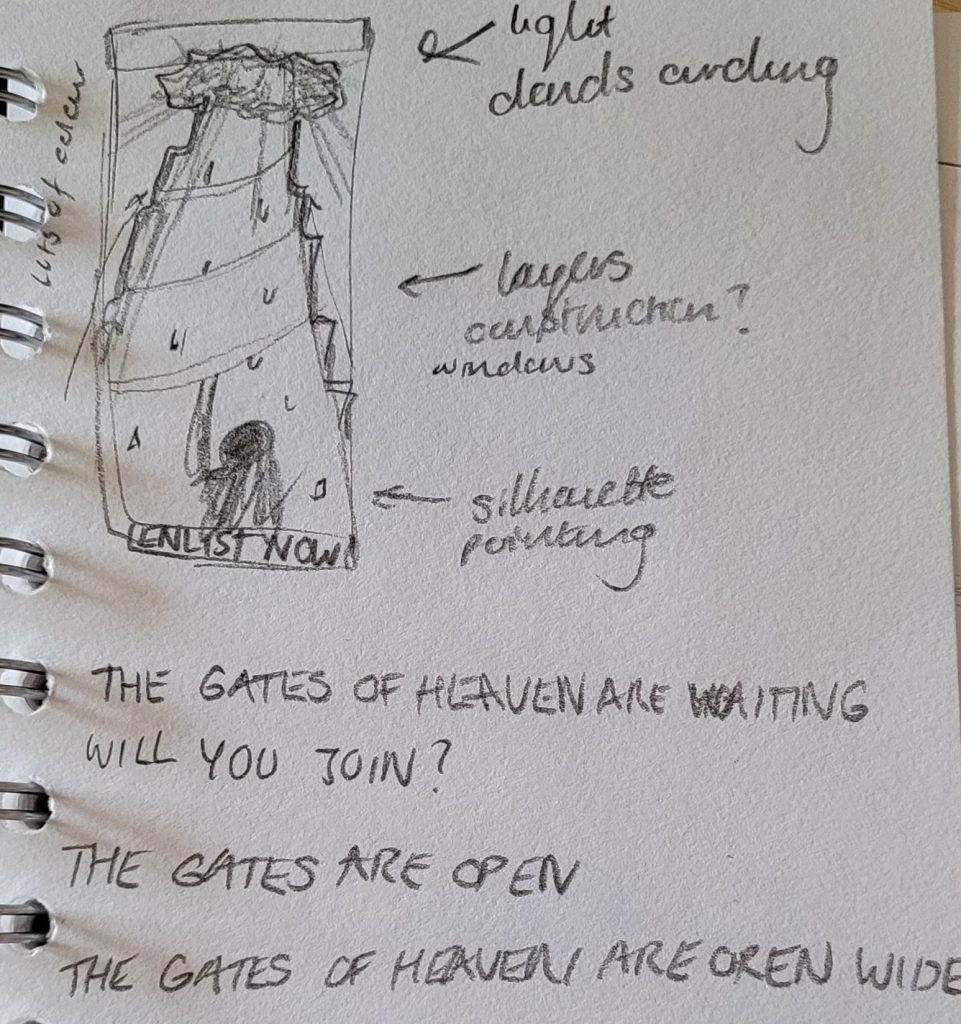 light
clouds circling
lots of color
layers
construction?
windows
silhouette
pointing
ENLIST NOW
THE GATES OF HEAVEN ARE WAITING
WILL YOU JOIN?
THE GATES ARE OPEN
THE GATES OF HEAVEN ARE OPEN WIDE